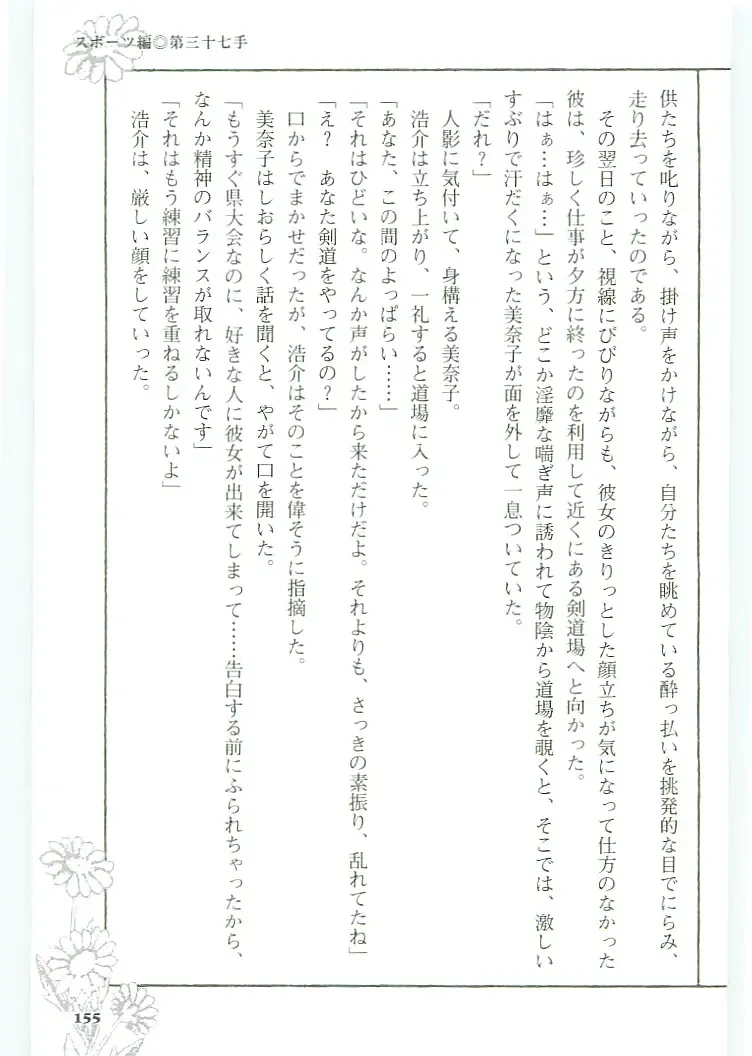 スポーツ編◎第三十七手
供たちを叱りながら、掛け声をかけながら、自分たちを眺めている酔っ払いを挑発的な目でにらみ、
走り去っていったのである。
その翌日のこと、視線にびびりながらも、彼女のきりっとした顔立ちが気になって仕方のなかった
彼は、珍しく仕事が夕方に終ったのを利用して近くにある剣道場へと向かった。
「はぁ…はぁ…」という、どこか淫靡な喘ぎ声に誘われて物陰から道場を覗くと、そこでは、激しい
すぶりで汗だくになった美奈子が面を外して一息ついていた。
「だれ？」
人影に気付いて、身構える美奈子。
浩介は立ち上がり、一礼すると道場に入った。
「あなた、この間のよっぱらい……」
「それはひどいな。なんか声がしたから来ただけだよ。それよりも、さっきの素振り、乱れてたね」
「え？　あなた剣道をやってるの？」
口からでまかせだったが、浩介はそのことを偉そうに指摘した。
美奈子はしおらしく話を聞くと、やがて口を開いた。
「もうすぐ県大会なのに、好きな人に彼女が出来てしまって……告白する前にふられちゃったから、
なんか精神のバランスが取れないんです」
「それはもう練習に練習を重ねるしかないよ」
浩介は、厳しい顔をしていった。
155